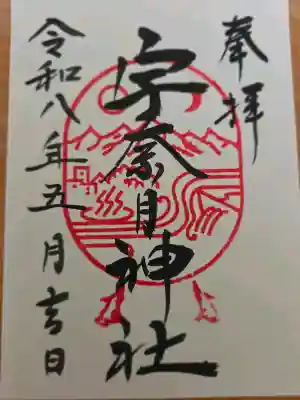 奉拝
宇奈月神社
令和八年五月吉日